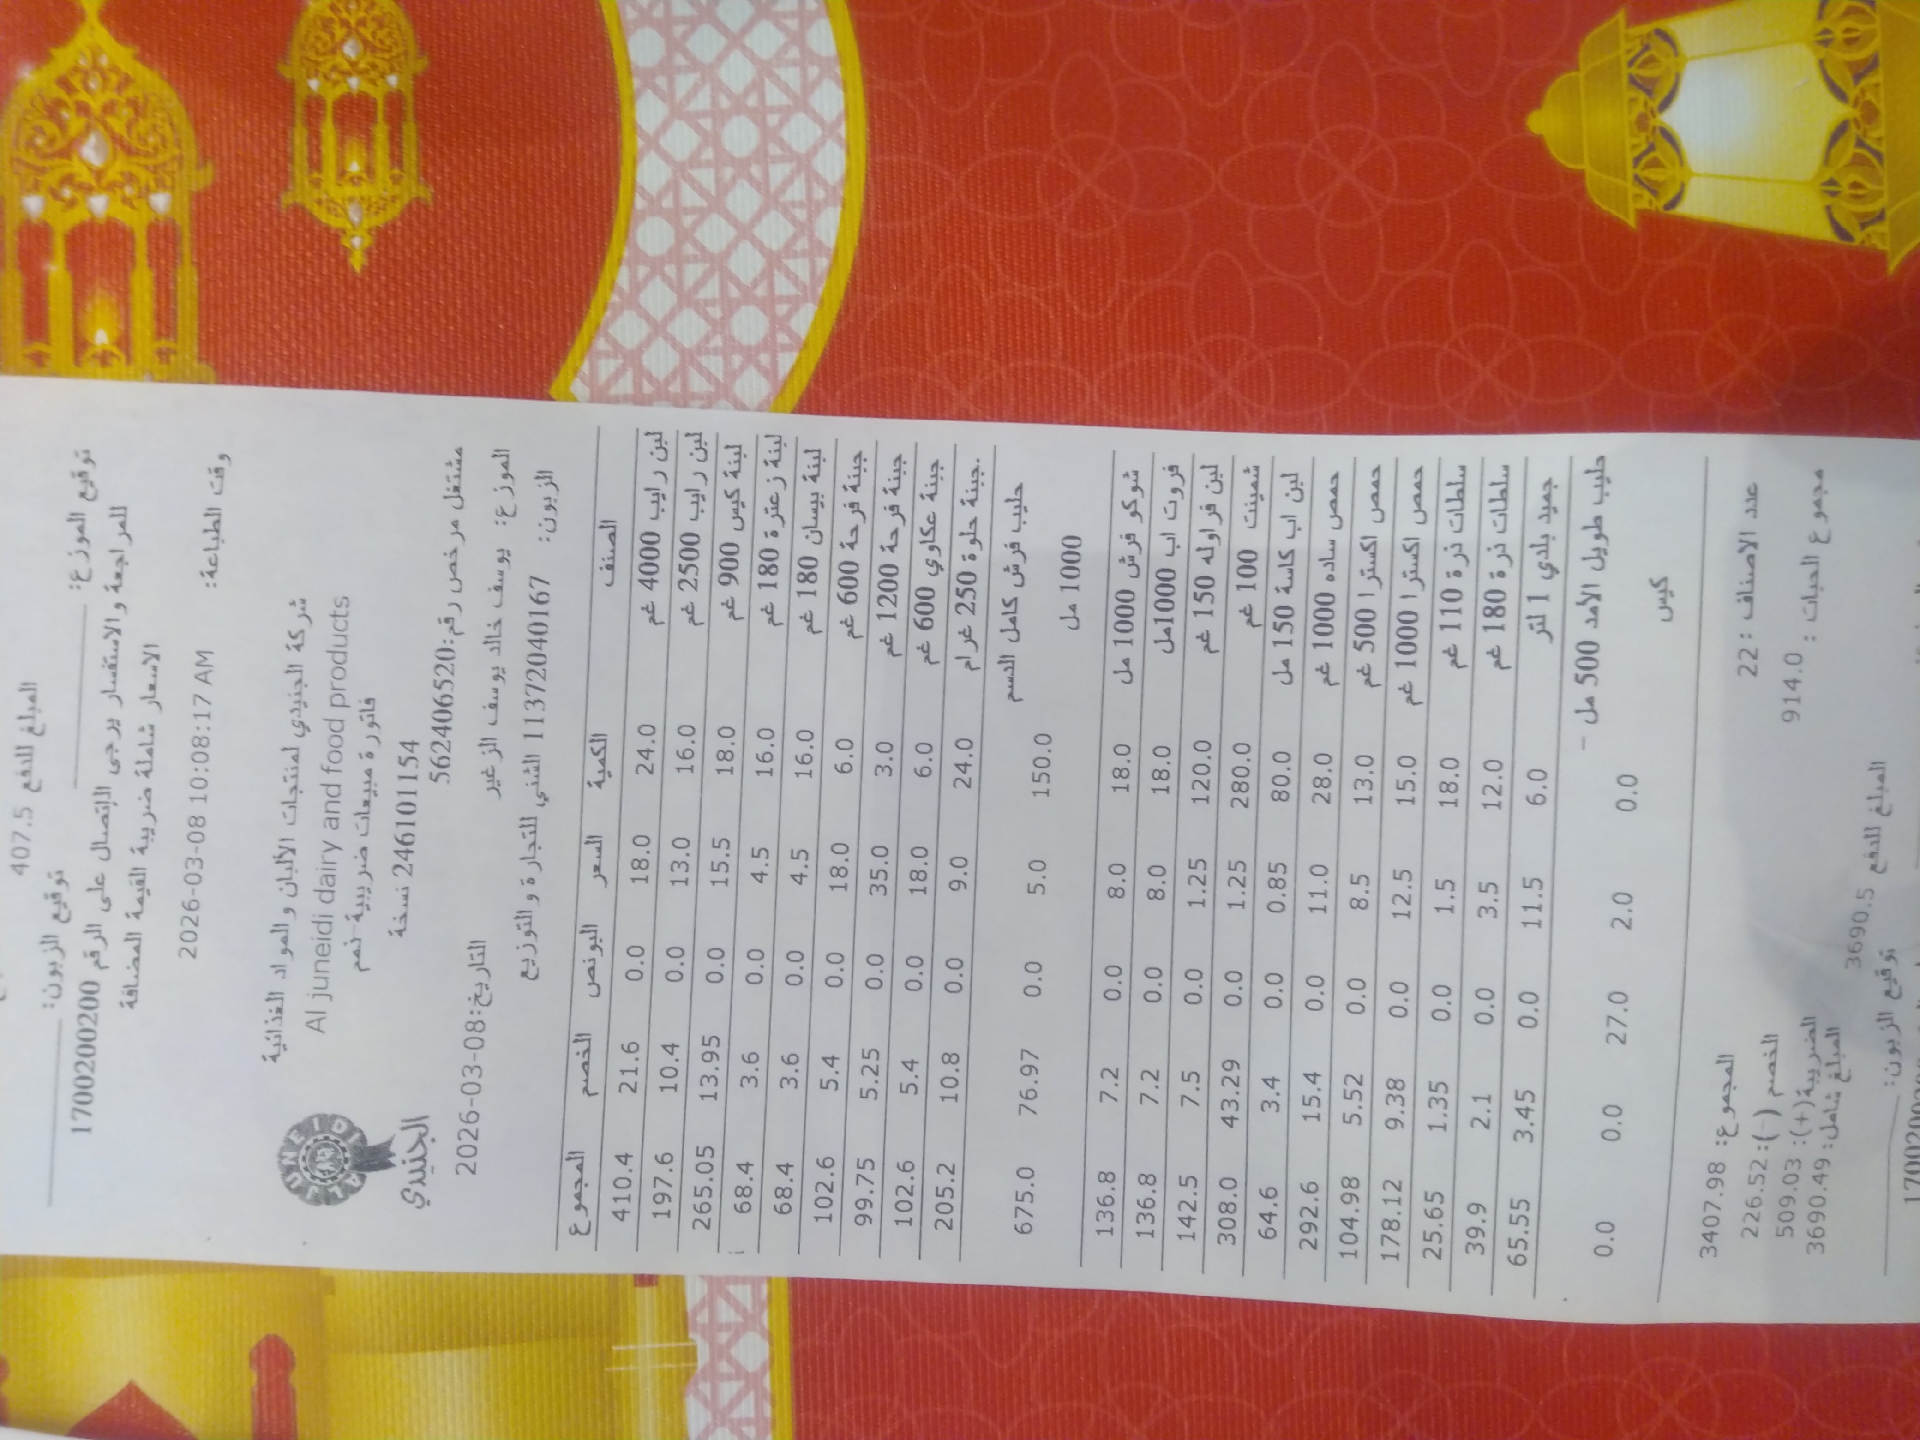 المبلغ للدفع 407.5
توقيع الموزع: توقيع الزبون:
للمراجعة والاستفسار يرجى الإتصال على الرقم 1700200200
الاسعار شاملة ضريبة القيمة المضافة
وقت الطباعة: 2026-03-08 10:08:17 AM
شركة الجنيدي لمنتجات الألبان والمواد الغذائية
Al juneidi dairy and food products
AL JUNEIDI
الجنيدي
فاتورة مبيعات ضريبية-ذمم
246101154 نسخة
مشتغل مرخص رقم:562406520
الموزع: يوسف خالد يوسف الزغير التاريخ:08-03-2026
الزبون: 11372040167 الشني للتجارة والتوزيع
الصنف الكمية السعر البونص الخصم المجموع
لبن رايب 4000 غم 24.0 18.0 0.0 21.6 410.4
لبن رايب 2500 غم 16.0 13.0 0.0 10.4 197.6
لبنة كيس 900 غم 18.0 15.5 0.0 13.95 265.05
لبنة زعترة 180 غم 16.0 4.5 0.0 3.6 68.4
لبنة بيسان 180 غم 16.0 4.5 0.0 3.6 68.4
جبنة فرحة 600 غم 6.0 18.0 0.0 5.4 102.6
جبنة فرحة 1200 غم 3.0 35.0 0.0 5.25 99.75
جبنة عكاوي 600 غم 6.0 18.0 0.0 5.4 102.6
جبنة حلوة 250 غرام. 24.0 9.0 0.0 10.8 205.2
حليب فرش كامل الدسم 150.0 5.0 0.0 76.97 675.0
1000 مل
شوكو فرش 1000 مل 18.0 8.0 0.0 7.2 136.8
فروت اب 1000مل 18.0 8.0 0.0 7.2 136.8
لبن فراوله 150 غم 120.0 1.25 0.0 7.5 142.5
شمينت 100 غم 280.0 1.25 0.0 43.29 308.0
لبن اب كاسة 150 مل 80.0 0.85 0.0 3.4 64.6
حمص ساده 1000 غم 28.0 11.0 0.0 15.4 292.6
حمص اكسترا 500 غم 13.0 8.5 0.0 5.52 104.98
حمص اكسترا 1000 غم 15.0 12.5 0.0 9.38 178.12
سلطات ذرة 110 غم 18.0 1.5 0.0 1.35 25.65
سلطات ذرة 180 غم 12.0 3.5 0.0 2.1 39.9
جميد بلدي 1 لتر 6.0 11.5 0.0 3.45 65.55
حليب طويل الأمد 500 مل -
0.0 2.0 27.0 0.0 0.0
كيس
عدد الاصناف : 22 المجموع: 3407.98
مجموع الحبات : 914.0 الخصم (-): 226.52
الضريبة(+): 509.03
المبلغ شامل: 3690.49
المبلغ للدفع 3690.5
توقيع الزبون: